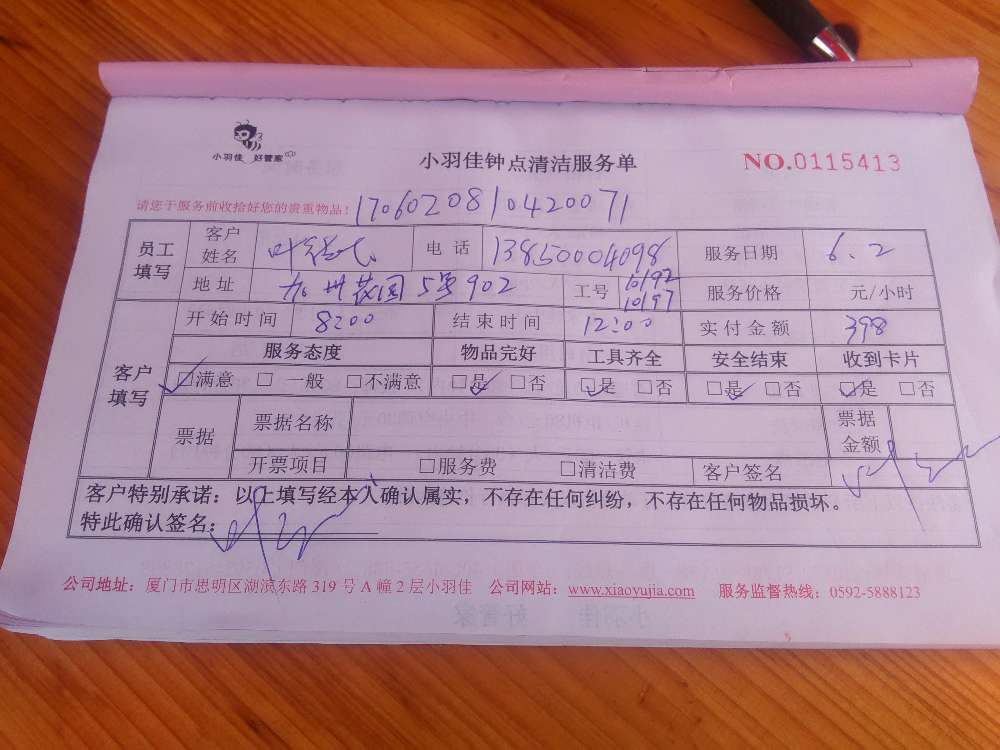 小羽佳 好管家
小羽佳钟点清洁服务单
NO.0115413
请您于服务前收拾好您的贵重物品！ 1706020810420071
员工填写 客户姓名 叶 电话 13850004098 服务日期 6.2
地址 加州花园5号902 工号 10192 10197 服务价格 元/小时
客户填写 开始时间 8:00 结束时间 12:00 实付金额 398
服务态度 物品完好 工具齐全 安全结束 收到卡片
☑满意 □一般 □不满意 ☑是 □否 ☑是 □否 ☑是 □否 ☑是 □否
票据 票据名称 票据金额
开票项目 □服务费 □清洁费 客户签名
客户特别承诺：以上填写经本人确认属实，不存在任何纠纷，不存在任何物品损坏。
特此确认签名：
公司地址：厦门市思明区湖滨东路 319 号 A 幢 2 层小羽佳 公司网站：www.xiaoyujia.com 服务监督热线：0592-5888123